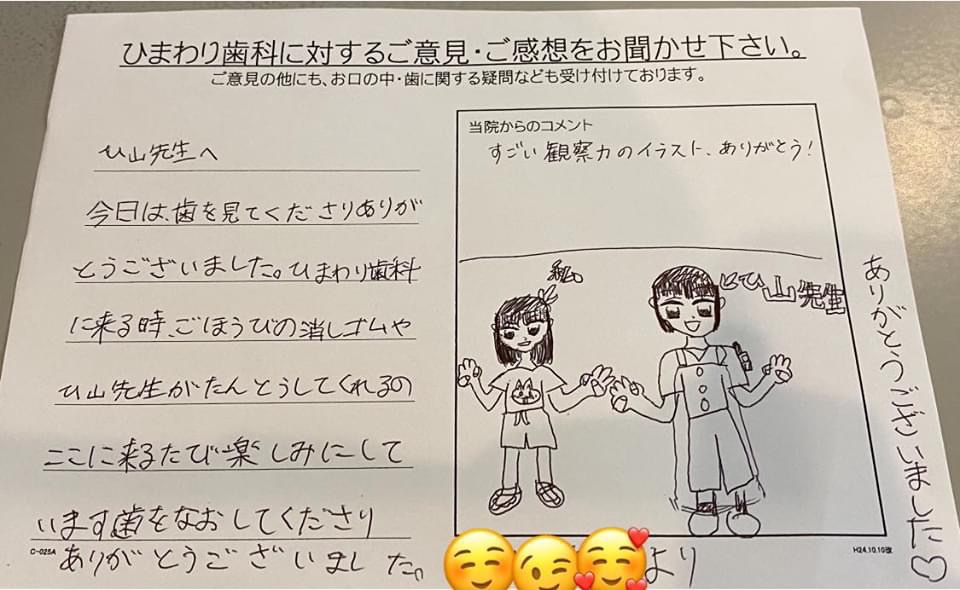 ひまわり歯科に対するご意見・ご感想をお聞かせ下さい。
ご意見の他にも、お口の中・歯に関する疑問なども受け付けております。
ひ山先生へ
今日は、歯を見てくださりありが
とうございました。ひまわり歯科
に来る時、ごほうびの消しゴムや
ひ山先生がたんとうしてくれるの
ここに来るたび楽しみにして
います歯をなおしてくださり
ありがとうございました。
C-025A
当院からのコメント
すごい観察力のイラスト、ありがとう!
私
ひ山先生
より
H24.10.10改
ありがとうございました♡